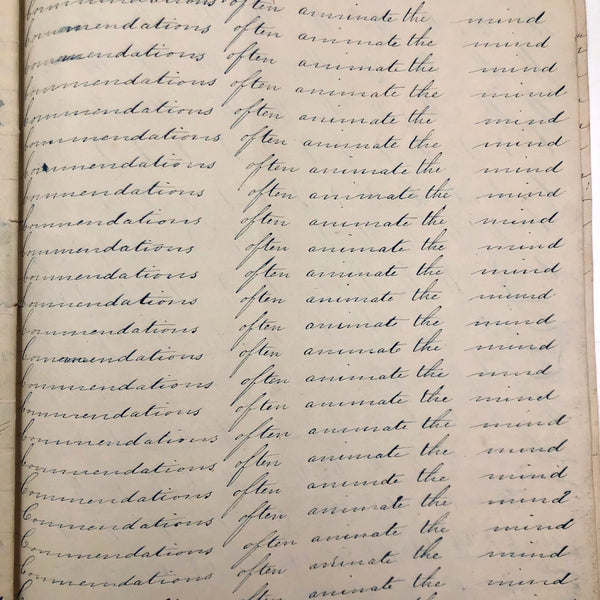 Commendations often animate the mind
Commendations often animate the mind
Commendations often animate the mind
Commendations often animate the mind
Commendations often animate the mind
Commendations often animate the mind
Commendations often animate the mind
Commendations often animate the mind
Commendations often animate the mind
Commendations often animate the mind
Commendations often animate the mind
Commendations often animate the mind
Commendations often animate the mind
Commendations often animate the mind
Commendations often animate the mind
Commendations often animate the mind
Commendations often animate the mind
Commendations often animate the mind
Commendations often animate the mind
Commendations often animate the mind
Commendations often animate the mind
Commendations often animate the mind
often animate the mind